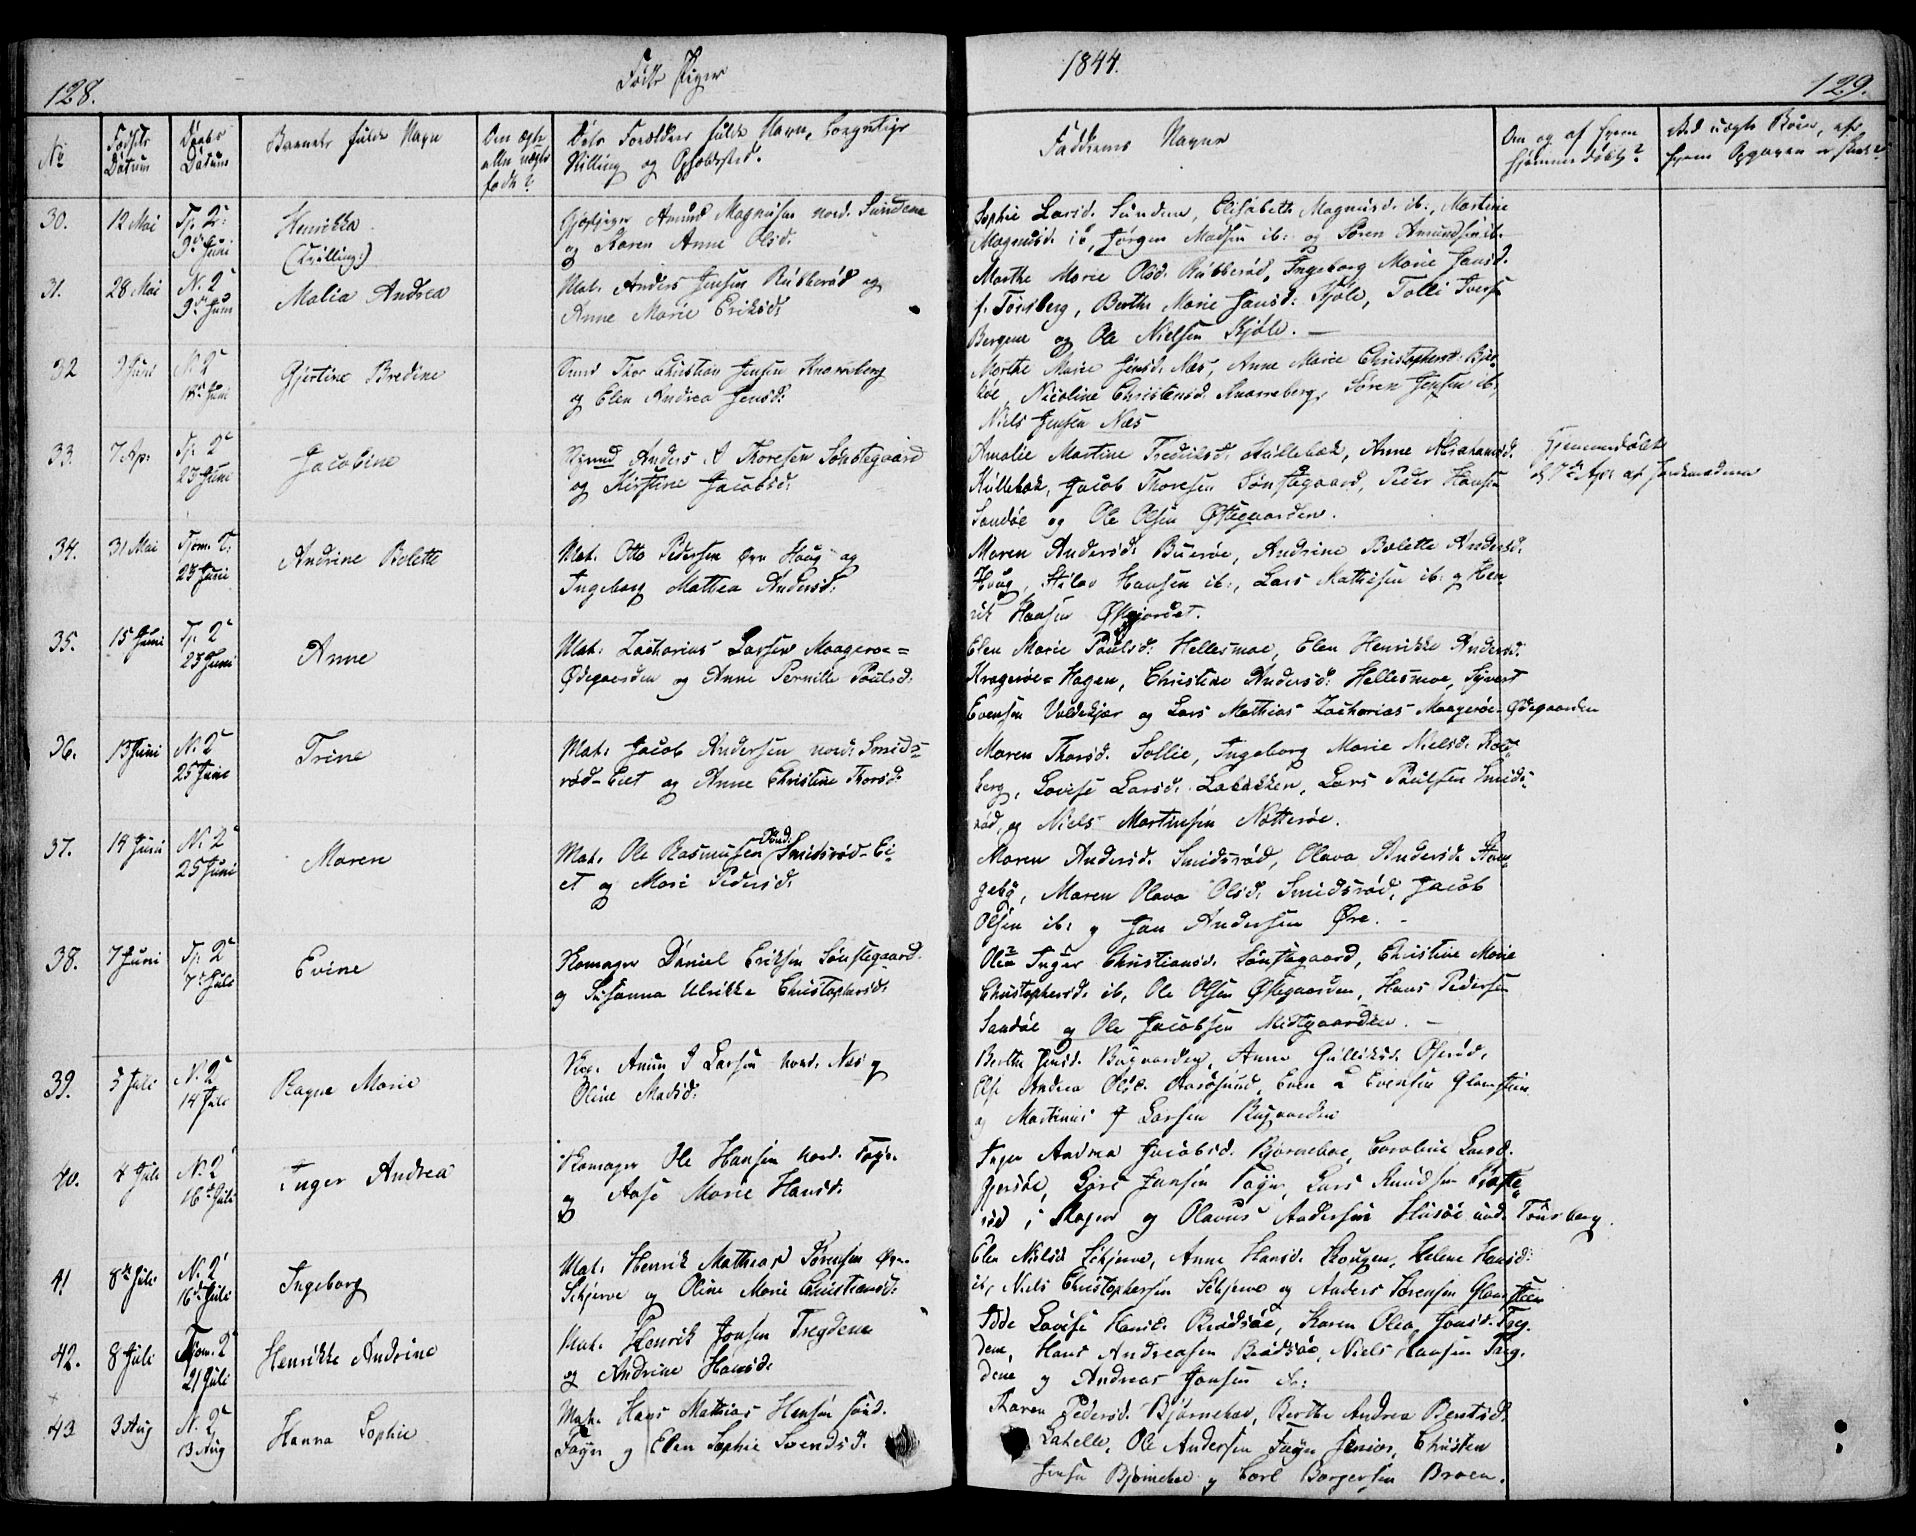 128.
Fødte Piger
1844.
129.
No
Fødsels Datum
Daabs Datum
Barnets fulde Navn
Om ægte eller uægte født?
Dets Forældres fulde Navn, borgerlige
Stilling og Opholdsted.
Faddernes Navne
Om og af hvem hjemmedøbt?
30.
12 Mai
Tj. 2
9de Juni
Henrikka
(Tvilling:)
Amund Magnusen nord. Sundene
og Karen Anne Olsd.
Sophie Larsd. Sundene, Elisabeth Magnusd. ib:, Martine
Magnusd. ib, Jørgen Madsen ib: og Søren Amundsen ib.
31.
28 Mai
N. 2
9de Juni
Malia Andrea
Mat. Anders Jensen Rubberød og
Anne Marie Eriksd:
Marthe Marie Olsd. Rubberød, Ingeborg Marie Hansd.
f. Tønsberg, Berthe Marie Hansd: Kjøle, Tolli Ivers
Bergene og Ole Nielsen Kjøle. —
32
9 Juni
N. 2
Juni
Gjertine Bredine
Thor Christian Jensen Knarreberg
og Elen Andrea Jensd:
Marthe Marie Jensd. Næs, Anne Marie Christophersd. Bjer-
køe, Nicoline Christensd. Knarreberg, Søren Jensen ib,
Niels Jensen Næs
33.
7 Ap:
Tj. 2
23 Juni
Jacobine
Anders A Thoresen Sønstegaard
og Kirstine Jacobsd:
Amalie Martine Fredriksd. Hullebæk, Anne Abrahamsd.
Hullebæk, Jacob Thoresen Sønstegaard, Peder Hansen
Sandøe og Ole Olsen Østegaarden.
Hjemmedøbt
d. 7de Apr: af Jordemoderen
34.
31 Mai
Tjom. 2:
23 Juni
Andrine Bolette
Mat. Otto Pedersen Øvr Haug og
Ingeborg Mathea Andersd:
Maren Andersd. Buerøe, Andrine Bolette Andersd.
Houg, Hansen ib:, Lars Mathisen ib: og Hen
rik Hansen Østgjordet.
35.
15 Juni
Tj. 2
23 Juni
Anne
Mat. Zacharias Larsen Maagerøe=
Ødegaarden og Anne Pernille Poulsd.
Elen Marie Poulsd: Hellesmoe, Elen Henrikke Andersd.
Kragerøe=Hagen, Christine Andersd: Hellesmoe, Syvert
Evensen Voldekjær og Lars Mathias Zacharias Maagerøe Ødegaarden
36.
13 Juni
N. 2
25 Juni
Trine
Mat. Jacob Andersen nord. Smids-
rød-Eiet og Anne Christine Thorsd:
Maren Thorsd. Sollie, Ingeborg Marie Nielsd. Kol-
berg, Lovise Larsd. Labakken, Lars Poulsen Smids-
rød, og Niels Martinsen Nøtterøe.
37.
14 Juni
N. 2
25 Juni
Maren
Mat. Ole Rasmusen Sønd. Smidsrød-Ei-
et og Mari Pedersd.
Maren Andersd. Smidsrød, Olava Andersd.
Maren Olava Olsd. Smidsrød, Jacob
Olsen ib: og Jan Andersen Øre. -
38.
7 Juni
Tj. 2
7de Juli
Evine
Skomager Daniel Eriksen Sønstegaard
og Susanna Ulrikke Christophersd:
Olea Inger Christiansd. Sønstegaard, Christine Marie
Christophersd. ib, Ole Olsen Østegaarden, Hans Pedersen
Sandøe og Ole Jacobsen Midtgaarden. —
39.
5 Juli
N. 2
14 Juli
Ragne Marie
Amun J Larsen nord. Næs og
Oline Madsd:
Berthe Jensd. Bugaarden, Anne Gulliksd. Oserød,
Else Andrea Olsd. Aarøsund, Even L Evensen Glomstein
og Martinus J Larsen Bugaarden
40.
4 Juli
N. 2
16de Juli
Inger Andrea
Skomager Ole Hansen nord. Føyn.
og Aase Marie Hansd.
Inger Andrea Jacobsd. Bjørneboe, Caroline Larsd.
Gjersøe, Lars Jansen Føyn, Lars Knudsen
rød i Slagen og Olavus Andersen Husøe und. Tønsberg.
41
8de Juli
N. 2
16de Juli
Ingeborg
Mat. Henrik Mathias Sørensen Øv.-
Skjerve og Oline Marie Christiansd:
Elen Nielsd Skjerve, Anne Hansd. Hougen, Helene Hansd:
ib, Niels Christophersen Skjerve og Anders Sørensen Glomsteen
42.
8 Juli
Tjom. 2
21 Juli
Henrikke Andrine
Mat. Henrik Jonsen Tregdene
og Andrine Hansd.
Idde Lovise Hansd. Brødsøe, Karen Olea Jonsd. Treg-
dene, Hans Andreasen Brødsøe, Niels Hansen Treg-
dene og Andreas Jonsen ib:
43
3 Aug
N. 2
Aug
Hanna Sophie
Mat. Hans Mathias Hensen sønd.
Føyn og Elen Sophie Svendsd.
Karen Pedersd. Bjørneboe, Berthe Andrea Berntsd.
Labelle, Ole Andersen Føyn Senior, Christen
Jensen Bjørneboe og Carl Borgersen Broen.